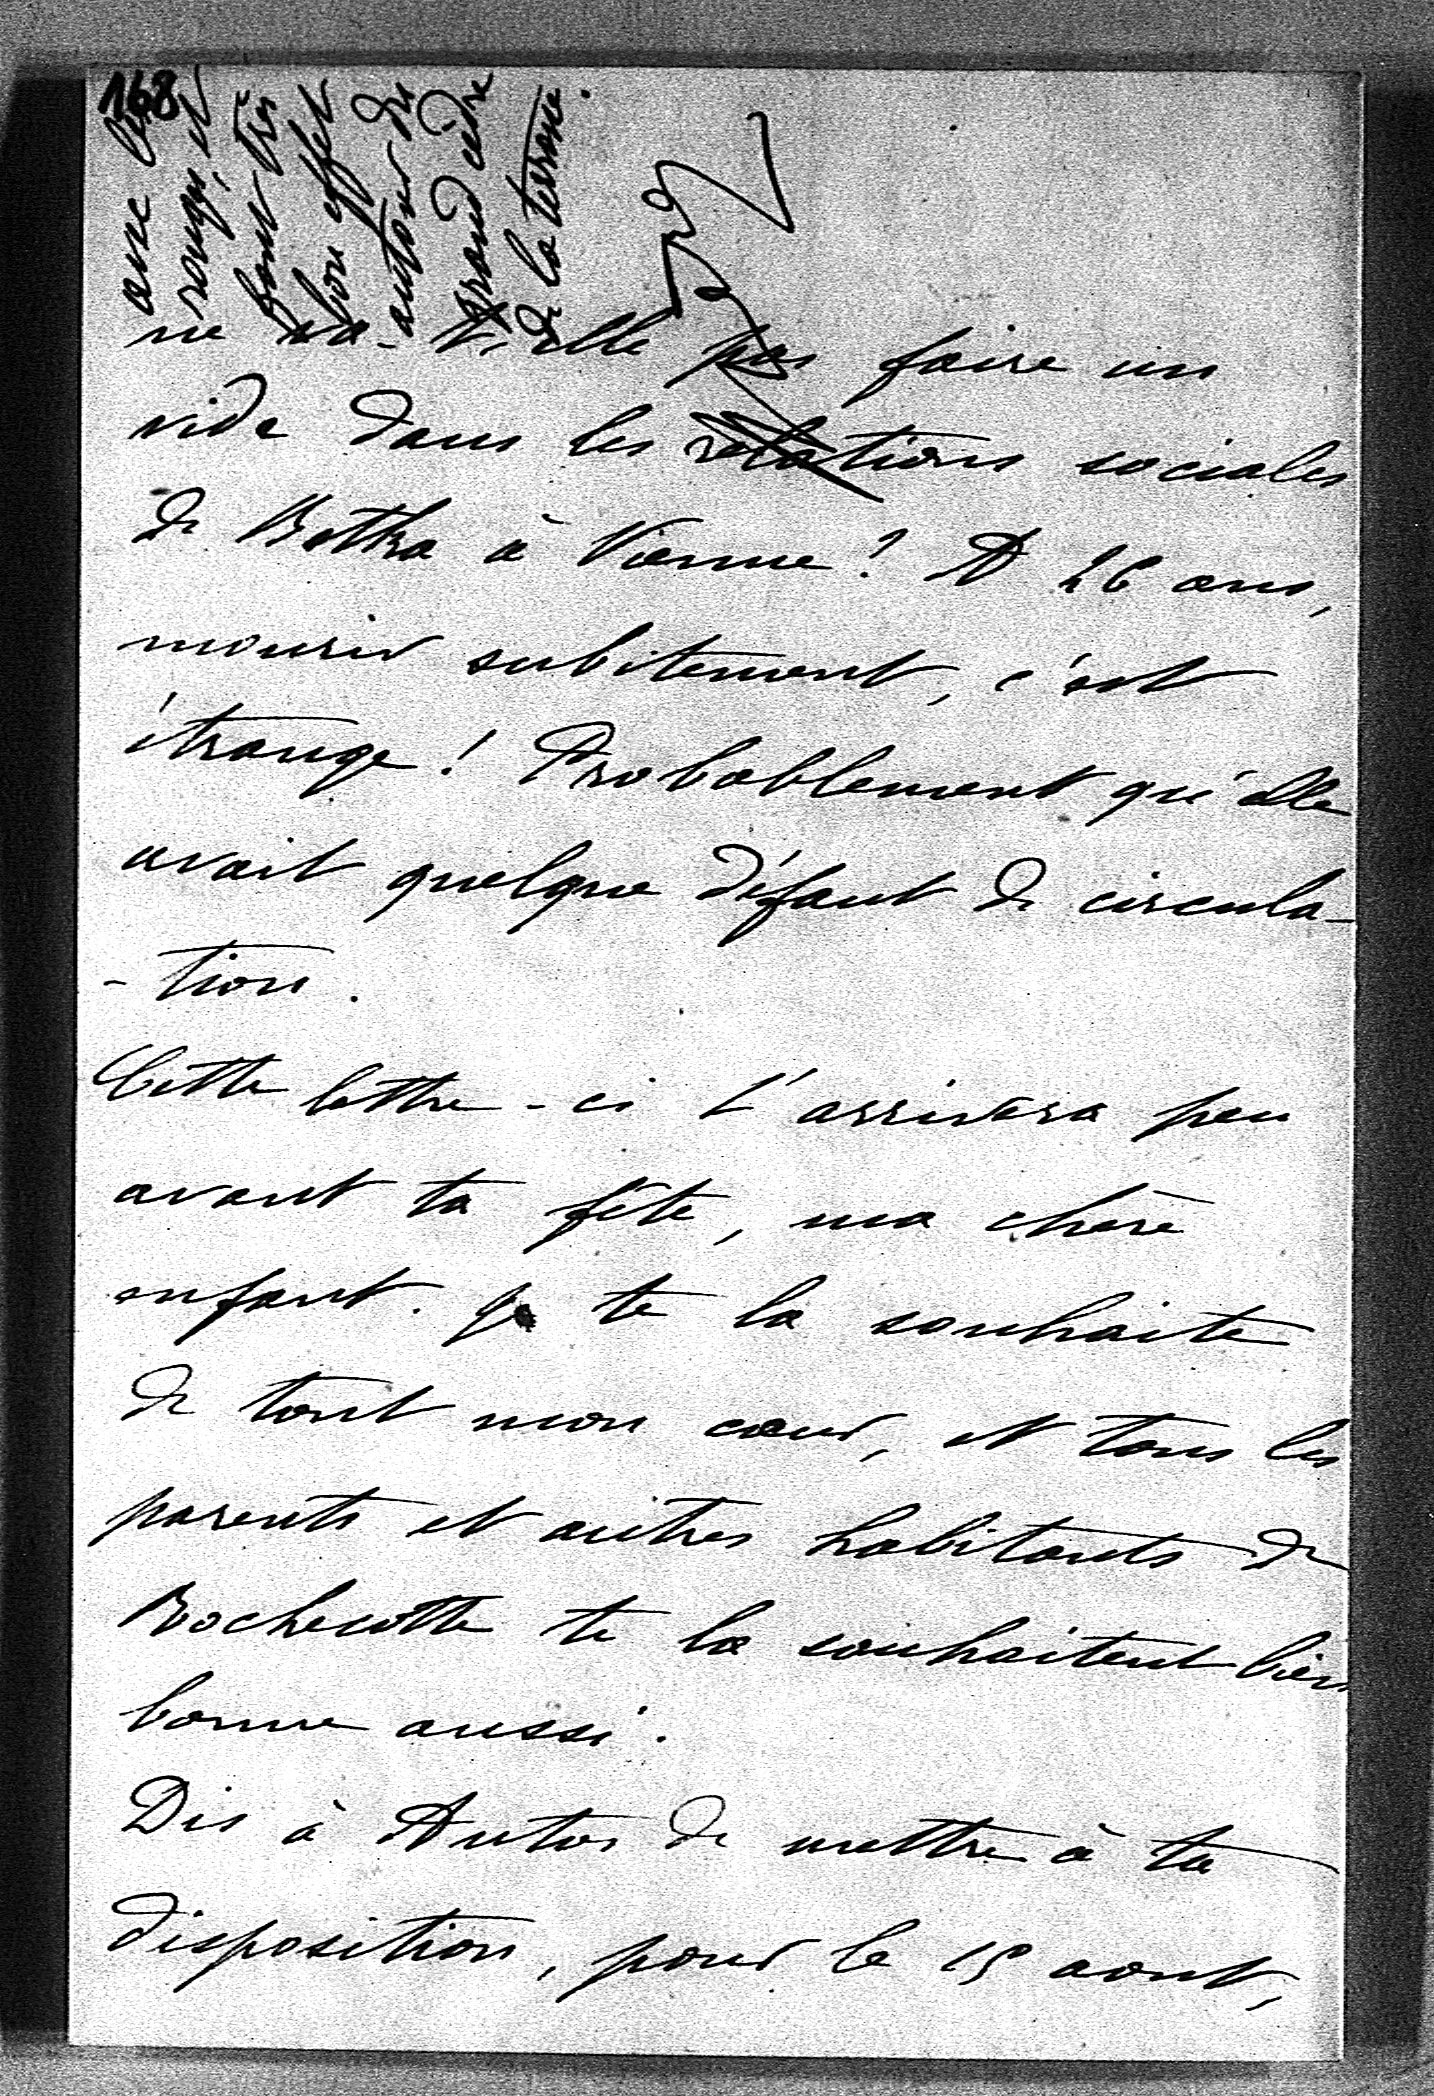 168
avec les
rouges, et
font très
bon effet
autour du
grand cèdre
de la terrasse.
ne va-t-elle pas faire un
vide dans les relations sociales
de Betka à Vienne? A 26 ans,
mourir subitement, c'est
étrange! Probablement qu'elle
avait quelque défaut de circula-
-tion.
Cette lettre-ci t'arrivera peu
avant ta fête, ma chère
enfant. Je te la souhaite
de tout mon cœur, et tous les
parents et autres habitants de
Rochecotte te la souhaitent bien
bonne aussi.
Dis à Anton de mettre à ta
disposition, pour le 15 aout,